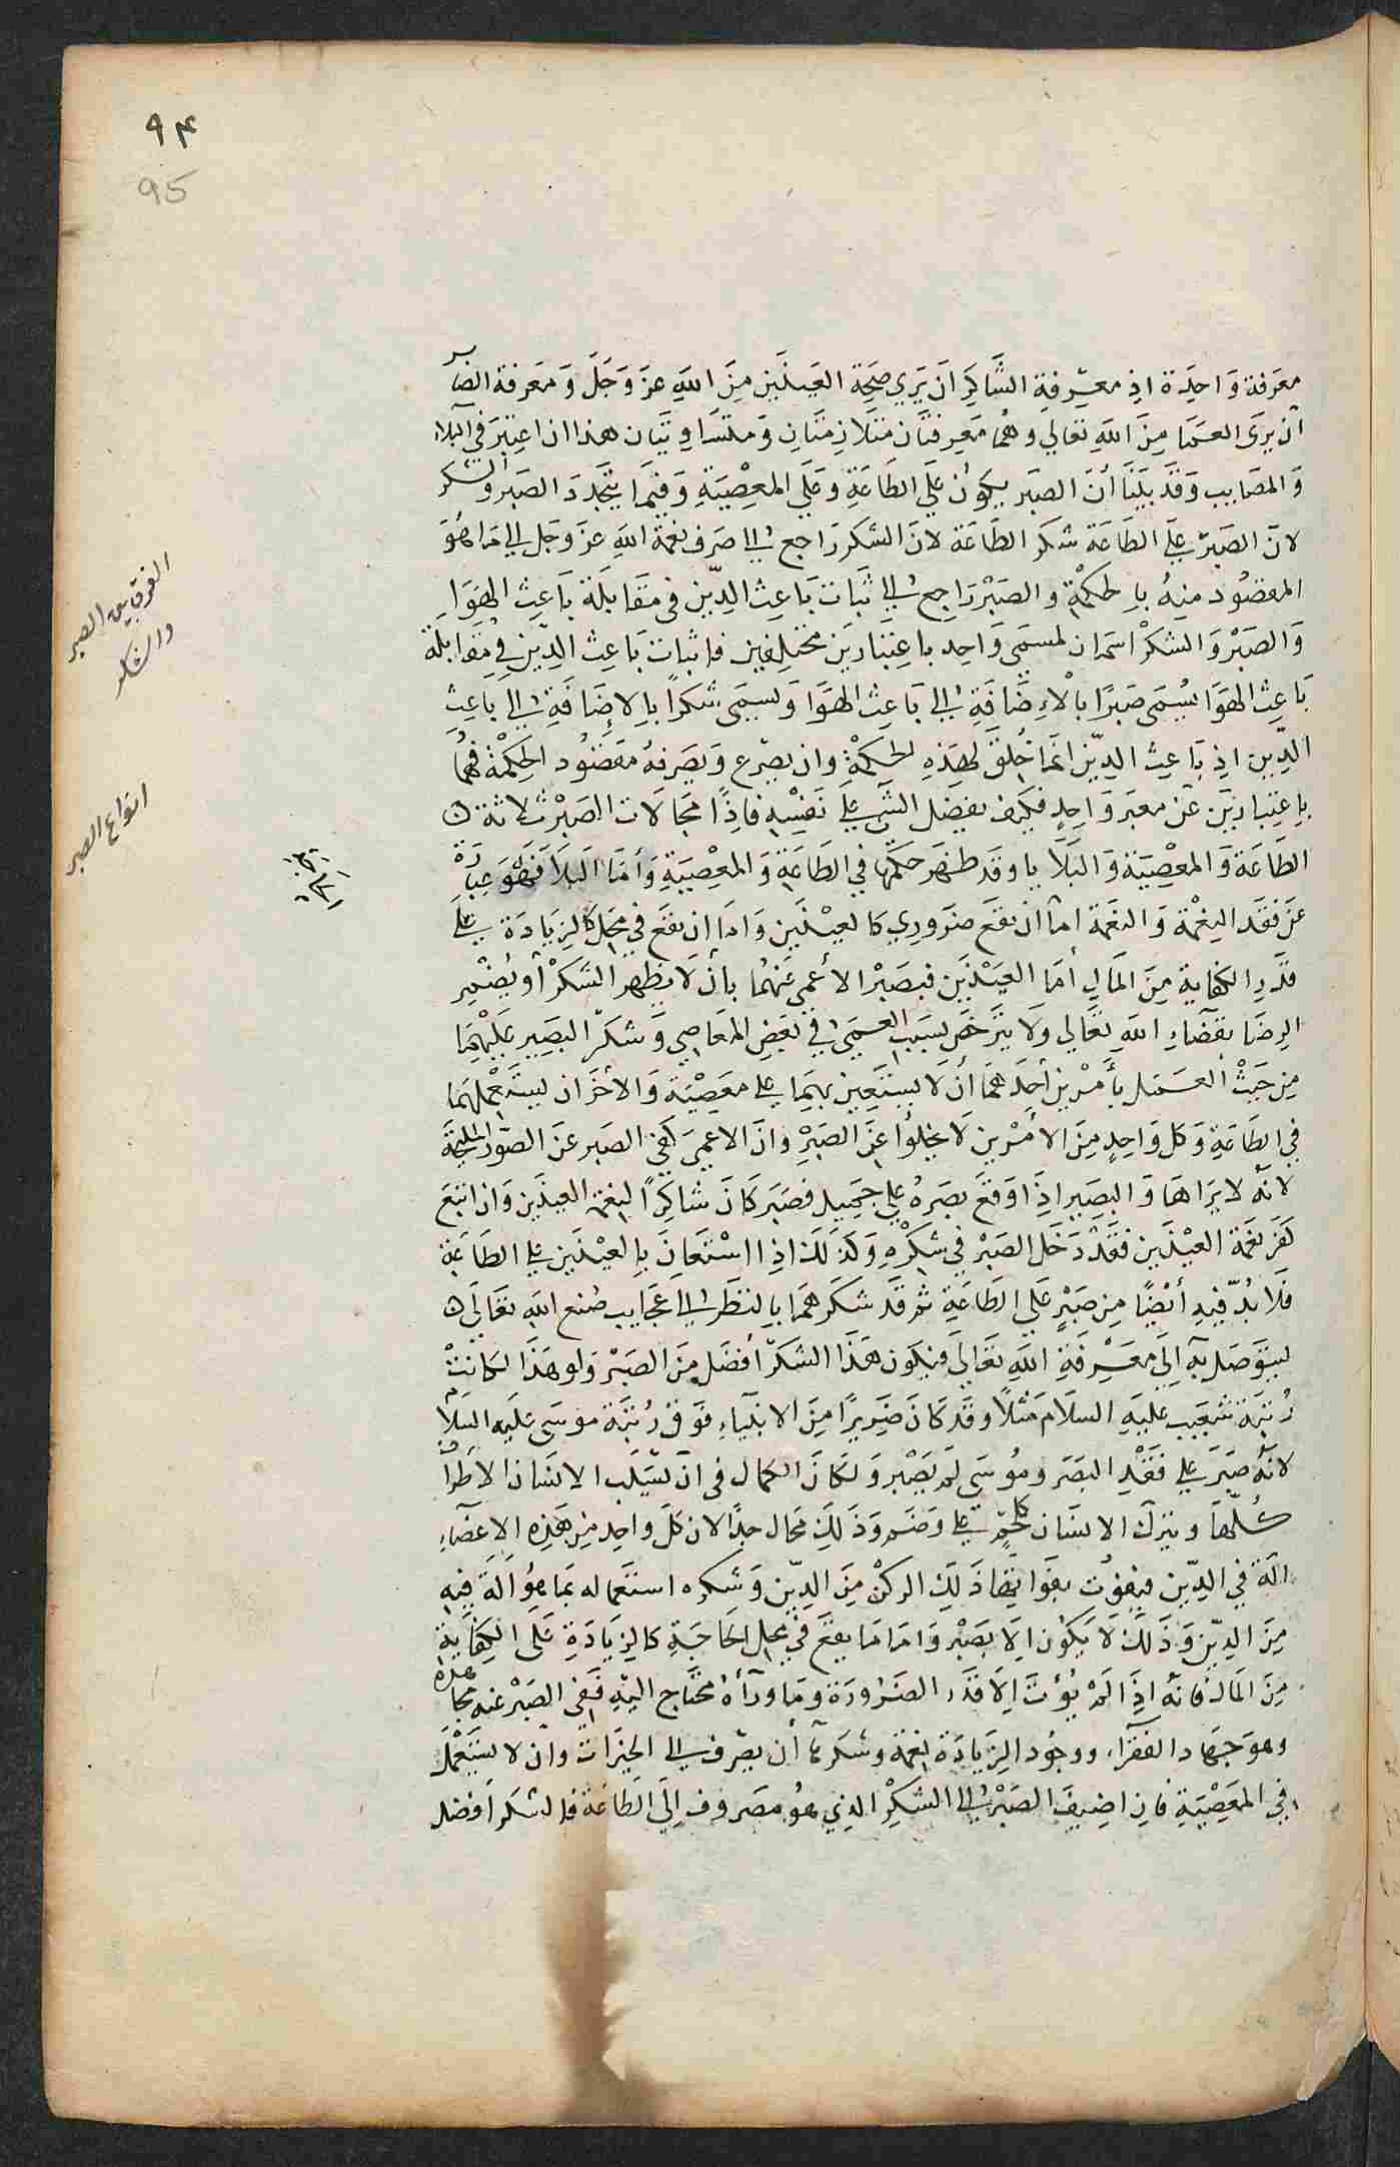 ٩٤
95
معرفة واحدة اذ معرفة الشاكر ان يري صحة العينين من الله عز وجل ومعرفة الصابر
ان يرى العما من الله تعالي وهما معرفتان متلازمتان ومتساويتان هذا ان اعتبر في البلاء
والمصايب وقد بينا أن الصبر يكون على الطاعة وعلي المعصية وفيهما يتحد الصبر والشكر
لان الصبر علي الطاعة شكر الطاعة لان الشكر راجع الي صرف نعمة الله عز وجل الي ما هو
المقصود منه بالحكمة والصبر راجع الي ثبات باعث الدين في مقابلة باعث الهوا
والصبر والشكر اسمان لمسمي واحد باعتبارين مختلفين فاثبات باعث الدين في مقابلة
باعث الهوا يسمى صبرا بالاضافة الي باعث الهوا ويسمي شكرا بالاضافة الي باعث
الدين اذ باعث الدين انما خلق لهذه الحكمة وان يصرع وبصرفه مقصود الحكمة فهما
باعتبارين عن معبر واحد فكيف يفضل الشي علي نفسه فاذا مجالات الصبر ثلاثة
الطاعة والمعصية والبلايا وقد ظهر حكمها في الطاعة والمعصية وأما البلا فهو عبارة
عن فقد النعمة والنعمة اما ان تقع ضروري كالعينين واما ان تقع في محل كالزيادة علي
قدر الكفاية من المال أما العينين فبصبر الأعمى عنهما بأن لا يظهر الشكر أو يضمر
الرضا بقضاء الله تعالي ولا يترخص بسبب العمي في بعض المعاصي وشكر البصير عليهما
من حيث العمل بأمرين أحدهما أن لا يستعين بهما علي معصية والأخر ان يستعملهما
في الطاعة وكل واحد من الأمرين لا يخلوا عن الصبر وان الاعمى كفي الصبر عن الصور الجميلة
لانه لا يراها والبصير اذا وقع بصره علي جميل فصبر كان شاكرا لنعمة العينين وان اتبع
كفر نعمة العينين فقد دخل الصبر في شكره وكذلك اذا استعان بالعينين علي الطاعة
فلا بد فيه أيضا من صبر علي الطاعة ثم قد شكرهما بالنظر الي عجايب صنع الله تعالى
ليتوصل به الى معرفة الله تعالى فيكون هذا الشكر أفضل من الصبر ولو هذا لكانت
رتبة شعيب عليه السلام مثلا وقد كان ضريرا من الانبياء فوق رتبة موسى عليه السلام
لانه صبر علي فقد البصر وموسى لم يصبر ولكان الكمال في ان تسيلب الانسان الاطراف
كلها ويترك الانسان كلحم علي وضم وذلك محال جدا لان كل واحد من هذه الاعضاء
الة في الدين فيفوت بفواتها ذلك الركن من الدين وشكره استعماله بما هو الة فيه
من الدين وذلك لا يكون الا بصبر واما ما يقع في محل الحاجة كالزيادة على الكفاية
من المال فانه اذا لم يؤت الا قدر الضرورة وما ورآه محتاج اليه ففي الصبر عنه مجاهدة
وهو جهاد الفقراء ووجود الزيادة نعمة وشكرها أن يصرف الي الخيرات وان لا يستعمل
في المعصية فان اضيف الصبر الي الشكر الذي هو مصروف الى الطاعة فالشكر أفضل
الفرق بين الصبر
والشكر
انواع الصبر